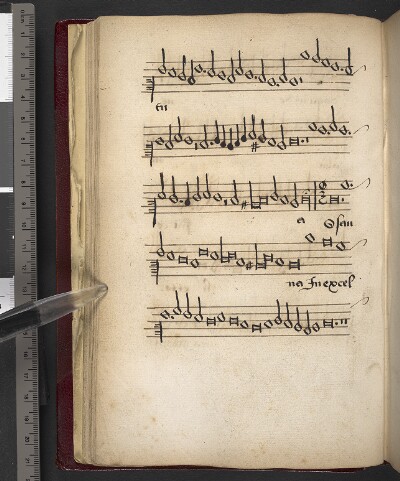 tii
a Osan
na In excel